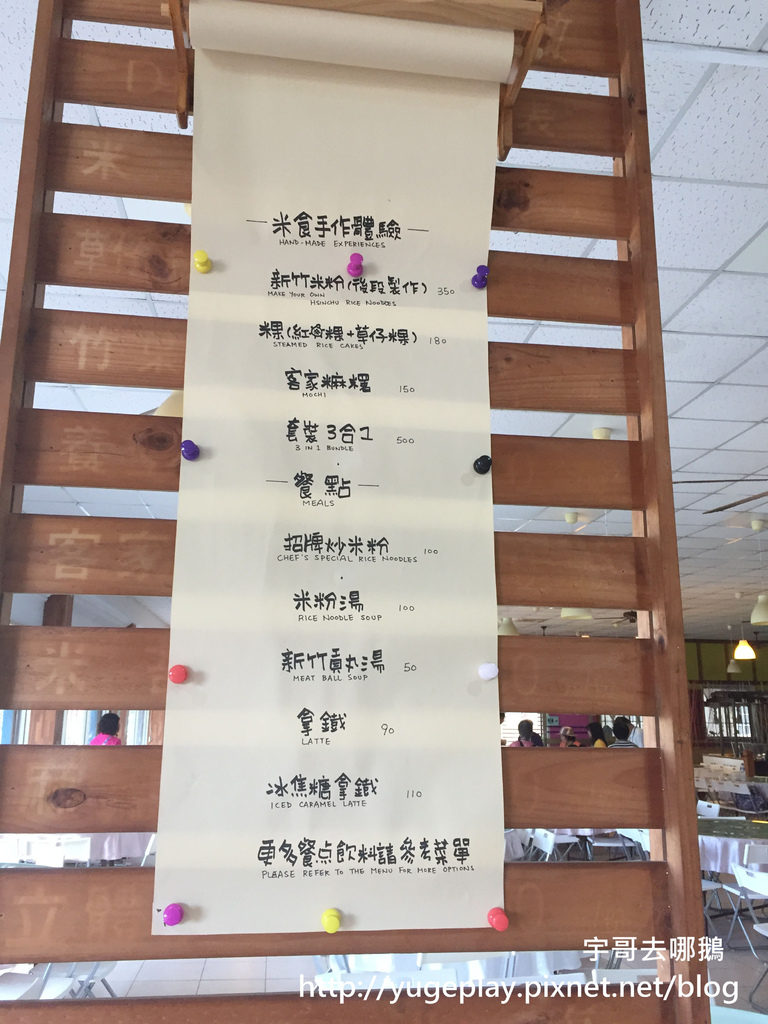 — 米食手作體驗 —
HAND-MADE EXPERIENCES
新竹米粉(後段製作) 350
MAKE YOUR OWN
HSINCHU RICE NOODLES
粿(紅龜粿+草仔粿) 180
STEAMED RICE CAKES
客家麻糬 150
MOCHI
套裝 3合1 500
3 IN 1 BUNDLE
— 餐點 —
MEALS
招牌炒米粉 100
CHEF'S SPECIAL RICE NOODLES
米粉湯 100
RICE NOODLE SOUP
新竹貢丸湯 50
MEAT BALL SOUP
拿鐵 90
LATTE
冰焦糖拿鐵 110
ICED CARAMEL LATTE
更多餐点飲料請參考菜單
PLEASE REFER TO THE MENU FOR MORE OPTIONS
米
竹
客家
米
粉
立體
宇哥去哪鵝
http://yugeplay.pixnet.net/blog